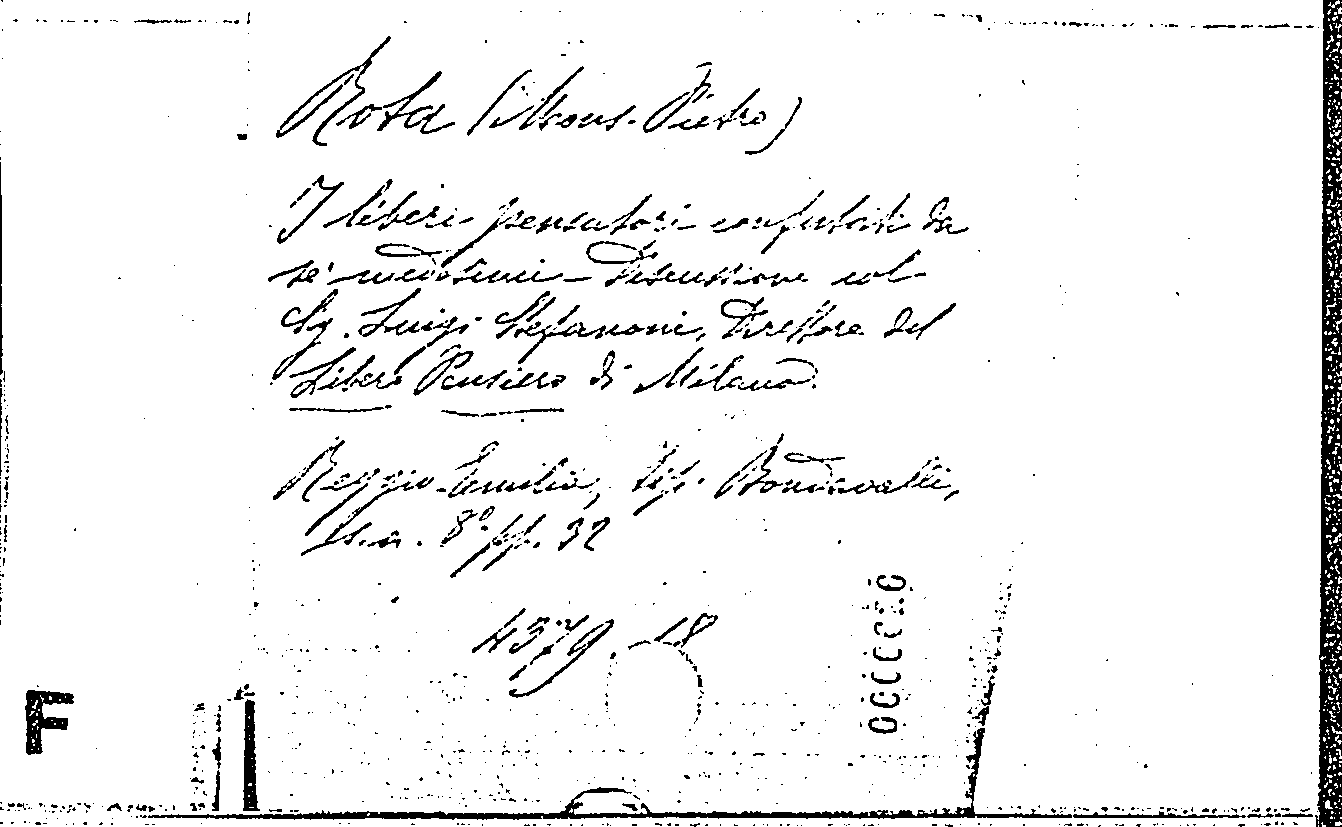 Rota (Mons. Pietro)
I liberi pensatori confutati da
sè medesimi - Discussione col
Sig. Luigi Stefanoni, Direttore del
Libero Pensiero di Milano.
Reggio-Emilia, Tip. Bondavalli,
s. a. 8° pp. 32
4379. 18
F